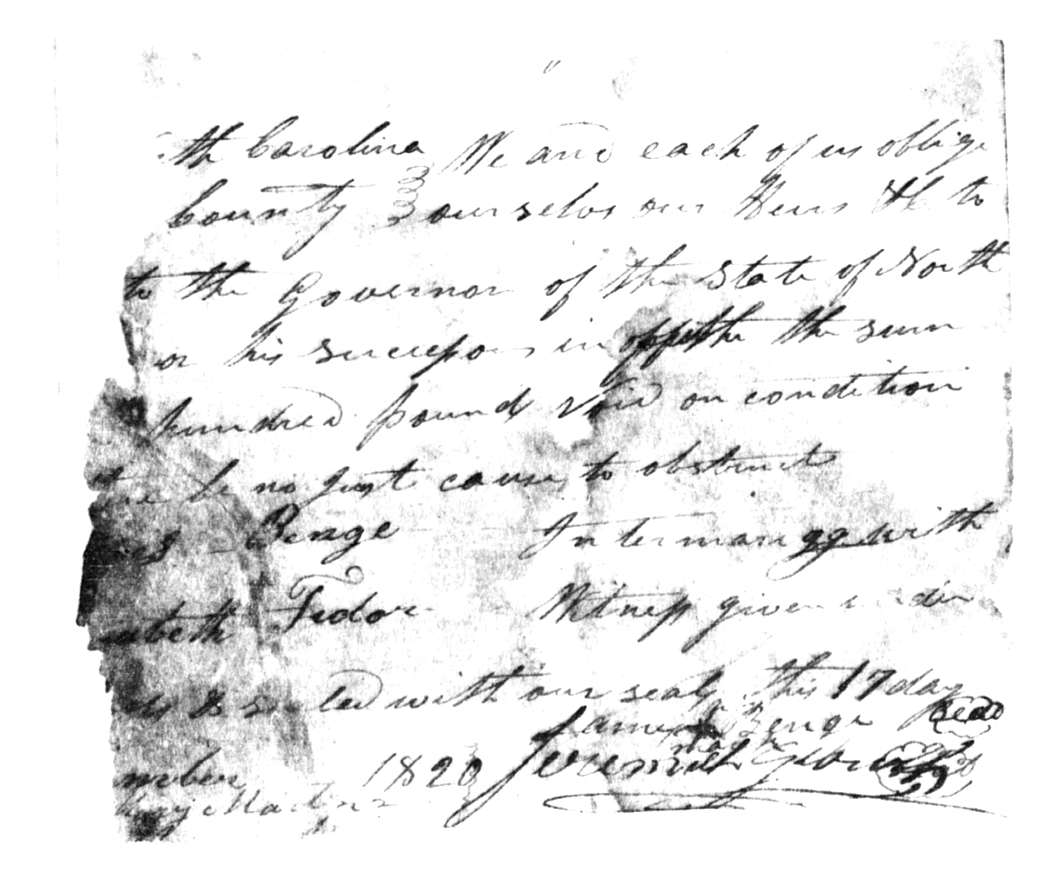 th Carolina We and each of us oblige
County ourselves our Heirs &c to
to the Governor of the State of North
or his Successors in office the sum
hundred pound void on condition
there be no Just cause to obstruct
Benge Intermarigg with
abeth Fedor Witness given under
ds & sealed with our seals this 17 day
James Benge Seal
mber 1820 Jeremiah